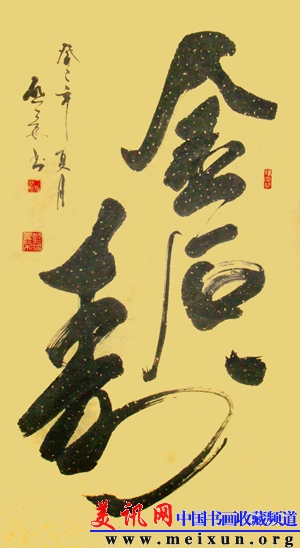 金石寿
癸巳年夏月
书
美讯网 中国书画收藏频道
www.meixun.org